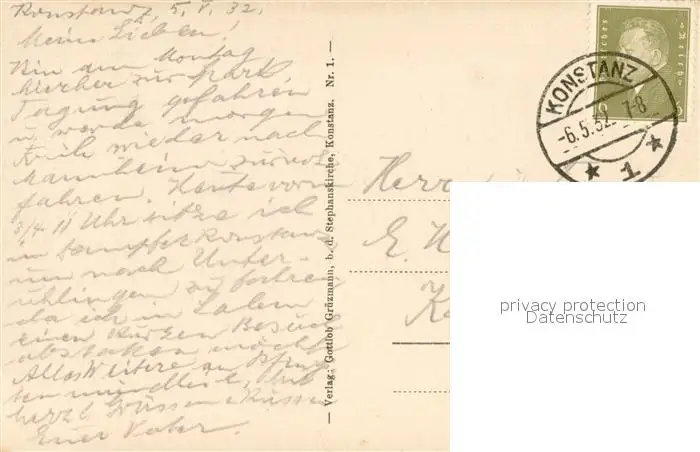 Konstanz, 5. V. 32.
Meine Lieben!
Bin am Montag
hierher zur
Tagung gefahren
u werde morgen
früh wieder nach
Mannheim zurück
fahren. Heute vorm
3/4 11 Uhr sitze ich
im Dampfer Konstanz
um nach Unter-
uhldingen zu fahren
da ich in Salem
einen kurzen Besuch
abstatten möchte
Alles Weitere an Pfing
sten mündlich.
herzl Grüssen u Küssen
Euer Vater.
— Verlag: Gottlob Grüzmann, b. d. Stephanskirche, Konstanz. Nr. 1. —
Deutsches Reich
6 6
KONSTANZ
-6.5.32. 7-8
★ 1 ★
Herr
E.
privacy protection
Datenschutz